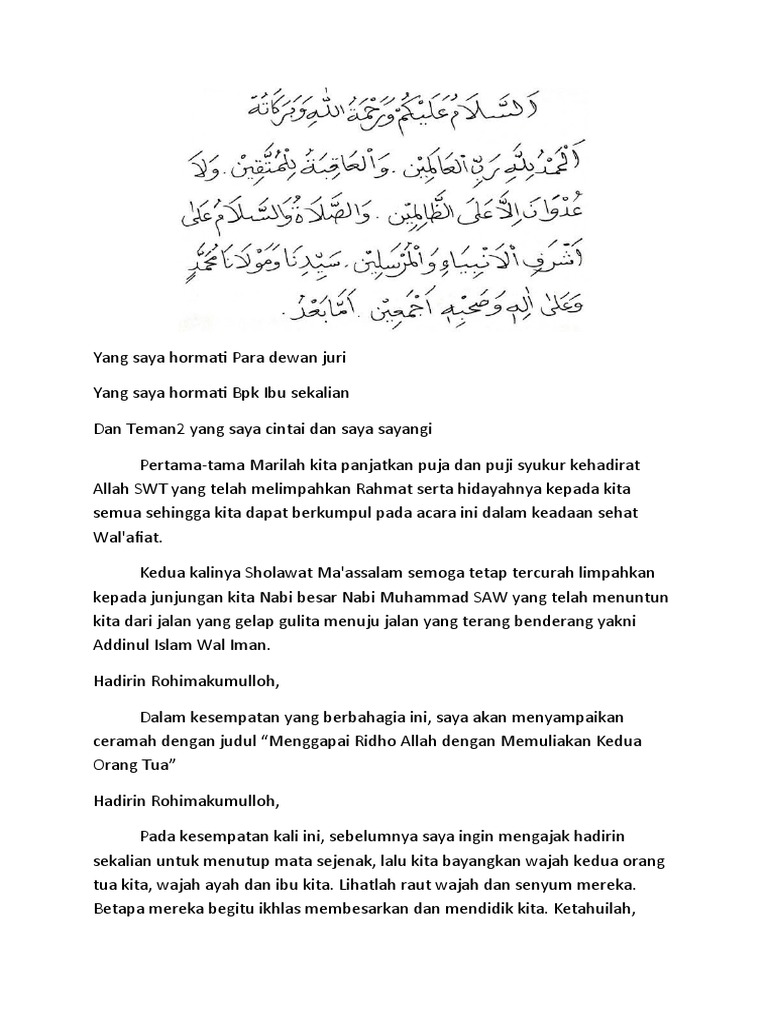 اَلسَّلَامُ عَلَيْكُمْ وَرَحْمَةُ اللهِ وَبَرَكَاتُهُ
اَلْحَمْدُ لِلّٰهِ رَبِّ الْعَالَمِيْنَ. وَالْعَاقِبَةُ لِلْمُتَّقِيْنَ. وَلَا
عُدْوَانَ اِلَّا عَلَى الظَّالِمِيْنَ. وَالصَّلَاةُ وَالسَّلَامُ عَلٰى
اَشْرَفِ الْاَنْبِيَاءِ وَالْمُرْسَلِيْنَ. سَيِّدِنَا وَمَوْلَانَا مُحَمَّدٍ
وَعَلٰى اٰلِهٖ وَصَحْبِهٖ اَجْمَعِيْنَ. اَمَّا بَعْدُ.
Yang saya hormati Para dewan juri
Yang saya hormati Bpk Ibu sekalian
Dan Teman2 yang saya cintai dan saya sayangi
Pertama-tama Marilah kita panjatkan puja dan puji syukur kehadirat
Allah SWT yang telah melimpahkan Rahmat serta hidayahnya kepada kita
semua sehingga kita dapat berkumpul pada acara ini dalam keadaan sehat
Wal'afiat.
Kedua kalinya Sholawat Ma'assalam semoga tetap tercurah limpahkan
kepada junjungan kita Nabi besar Nabi Muhammad SAW yang telah menuntun
kita dari jalan yang gelap gulita menuju jalan yang terang benderang yakni
Addinul Islam Wal Iman.
Hadirin Rohimakumulloh,
Dalam kesempatan yang berbahagia ini, saya akan menyampaikan
ceramah dengan judul “Menggapai Ridho Allah dengan Memuliakan Kedua
Orang Tua”
Hadirin Rohimakumulloh,
Pada kesempatan kali ini, sebelumnya saya ingin mengajak hadirin
sekalian untuk menutup mata sejenak, lalu kita bayangkan wajah kedua orang
tua kita, wajah ayah dan ibu kita. Lihatlah raut wajah dan senyum mereka.
Betapa mereka begitu ikhlas membesarkan dan mendidik kita. Ketahuilah,